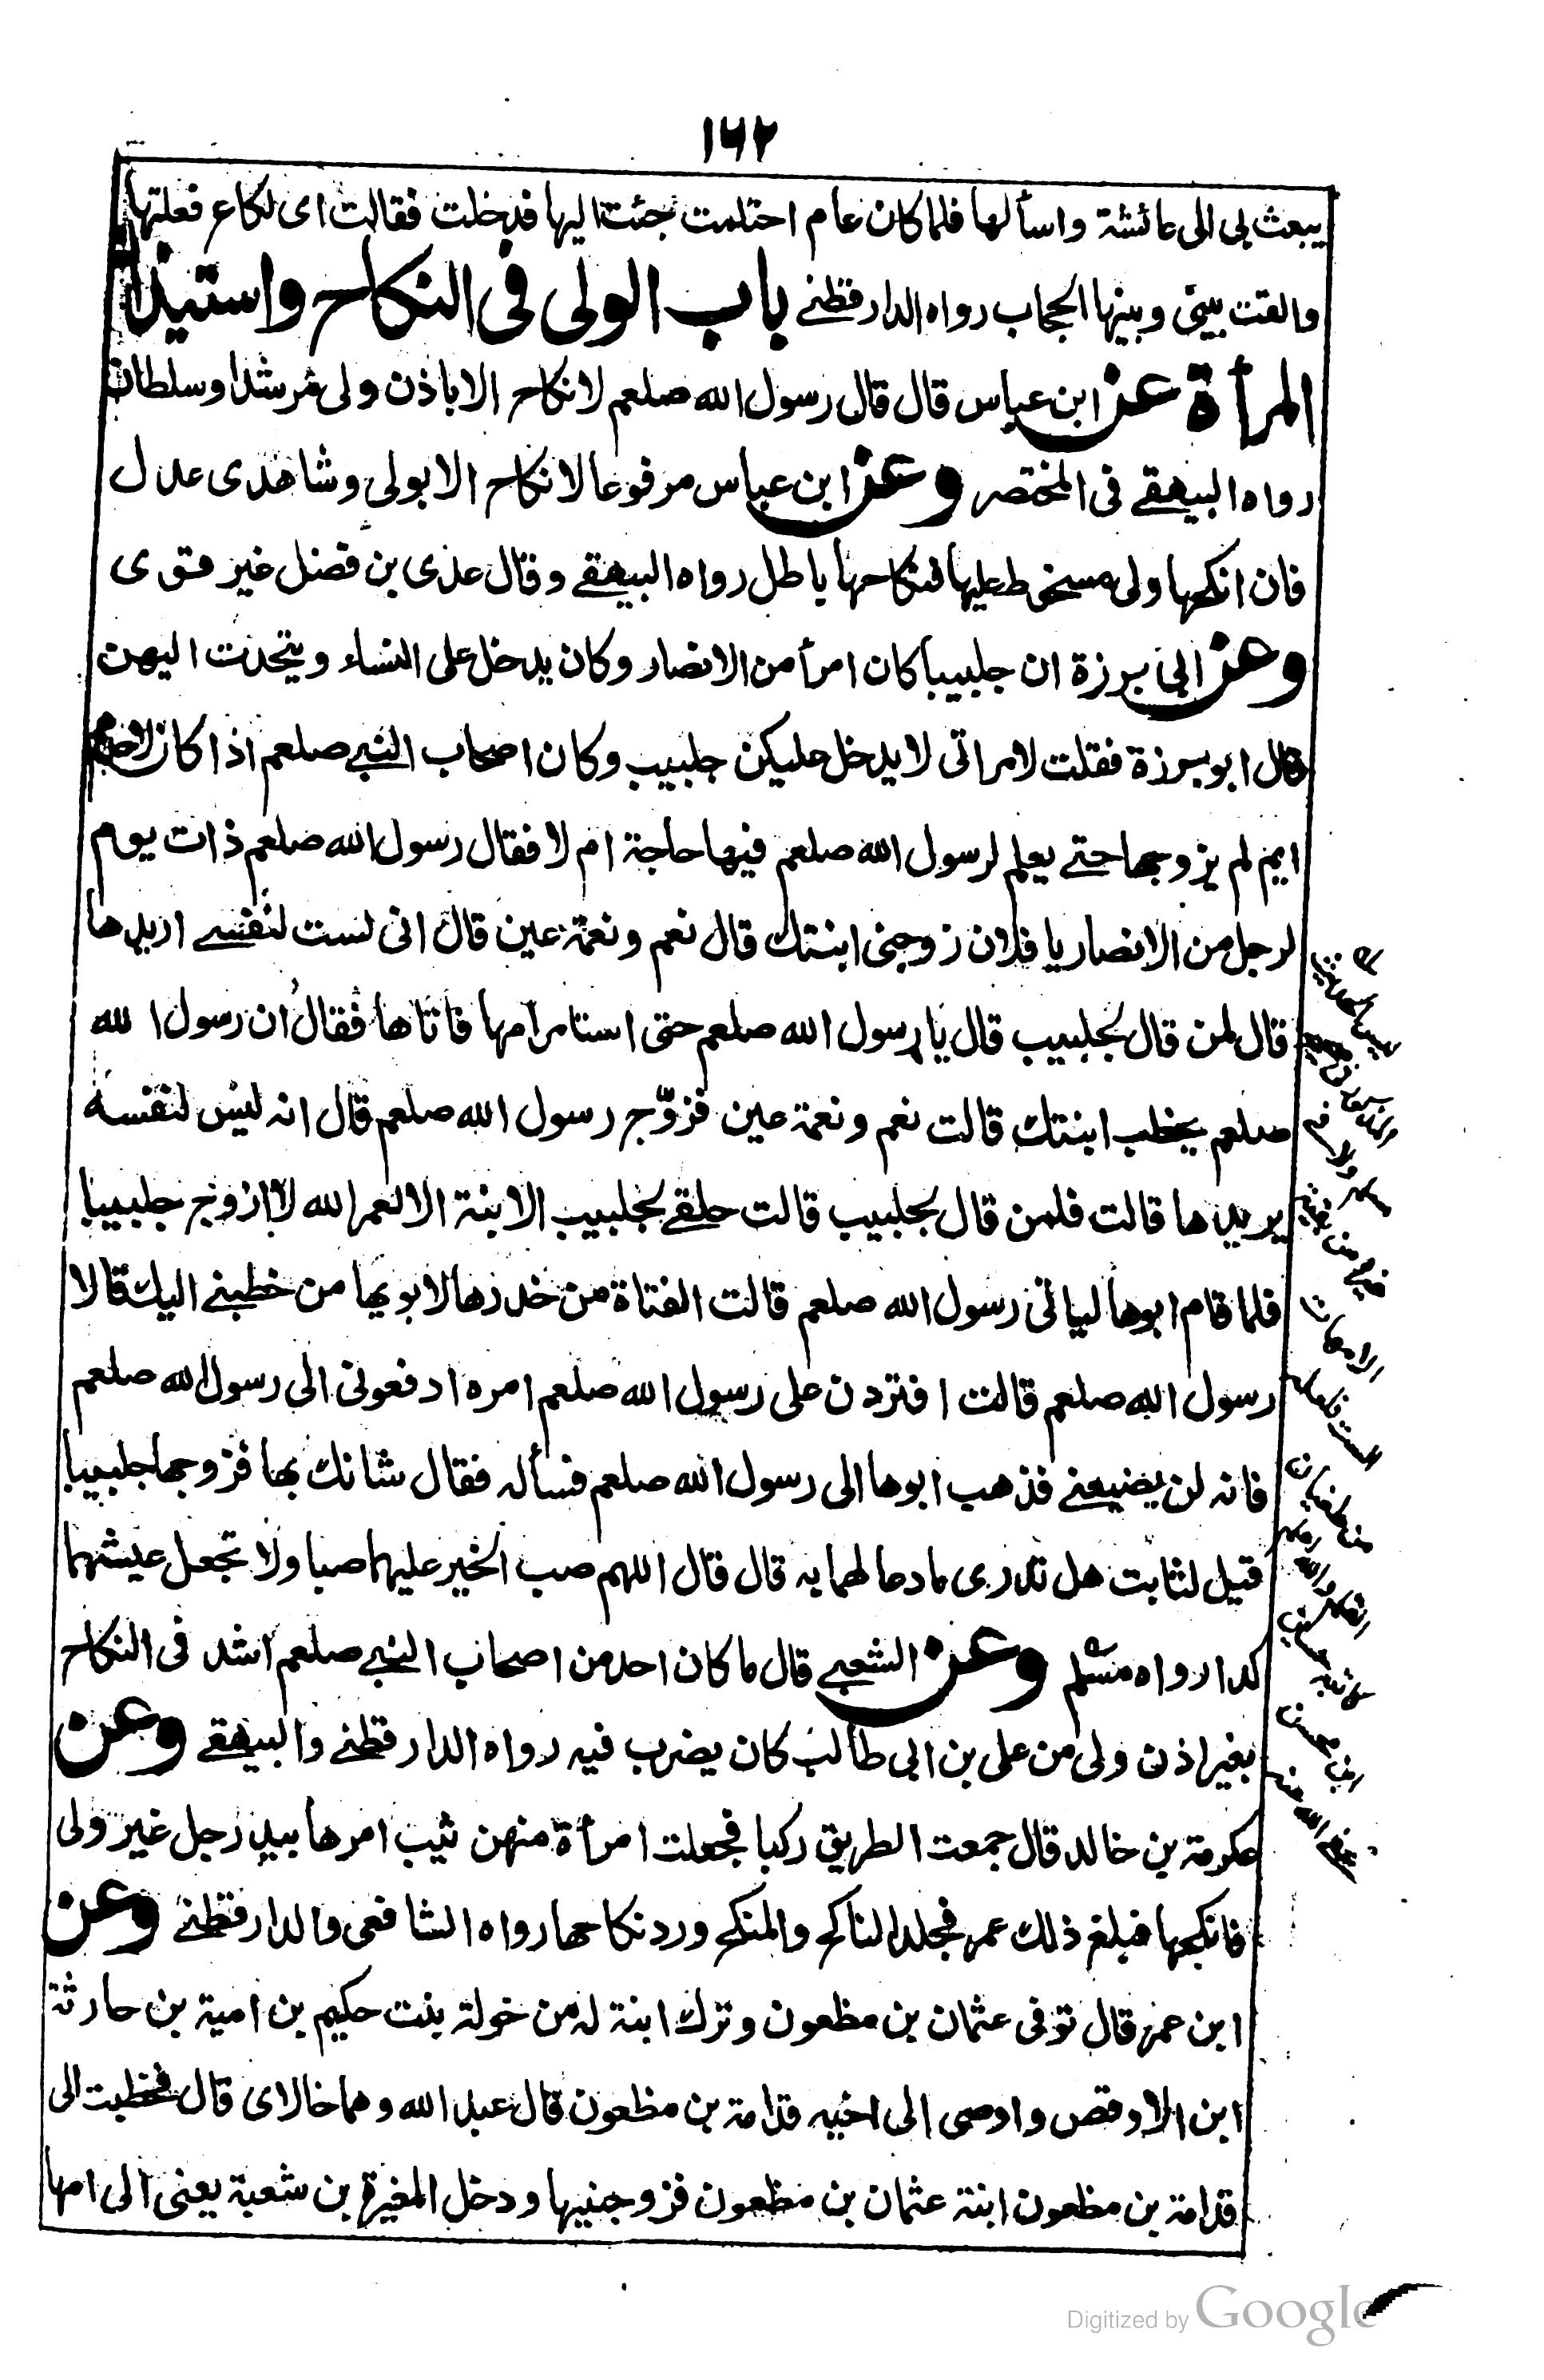 ١٦٢
يبعث بى الى عائشة واسألها فلما كان عام احتلمت جئت اليها فدخلت فقالت اى لكاع فعلتها
والقت بينى وبينها الحجاب رواه الدارقطنے باب الولى فى النكاح واستيذان
المرأة عن ابن عباس قال قال رسول الله صلعم لا نكاح الا باذن ولى مرشد او سلطان
رواه البيهقے فى المختصر وعن ابن عباس مرفوعا لا نكاح الا بولى وشاهدى عدل
فان انكحها ولى مسخوط عليها فنكاحها باطل رواه البيهقے وقال عدى بن فضل غير قوى
وعن ابى برزة ان جليبيبا كان امرأ من الانصار وكان يدخل على النساء ويتحدث اليهن
قال ابو برزة فقلت لامراتى لا يدخل عليكن جليبيب وكان اصحاب النبے صلعم اذا كان لاحدهم
ايم لم يزوجها حتے يعلم لرسول الله صلعم فيها حاجة ام لا فقال رسول الله صلعم ذات يوم
لرجل من الانصار يا فلان زوجنى ابنتك قال نعم ونعمة عين قال انى لست لنفسے اريدها
قال لمن قال لجليبيب قال يا رسول الله صلعم حتى استامر امها فاتاها فقال ان رسول الله
صلعم يخطب ابنتك قالت نعم ونعمة عين فزوّج رسول الله صلعم قال انه ليس لنفسه
يريدها قالت فلمن قال لجليبيب قالت حلقے لجليبيب الابنة الا لعمر الله لا ازوج جليبيبا
فلما قام ابوها لياتى رسول الله صلعم قالت الفتاة من خدرها لابويها من خطبنے اليك قالا
رسول الله صلعم قالت افتردن على رسول الله صلعم امره ادفعونى الى رسول الله صلعم
فانه لن يضيعنے فذهب ابوها الى رسول الله صلعم فسأله فقال شانك بها فزوجها جليبيبا
قيل لثابت هل تدرى ما دعا لهما به قال قال اللهم صب الخير عليهما صبا ولا تجعل عيشهما
كدا رواه مسلم وعن الشعبے قال ما كان احد من اصحاب النبے صلعم اشد فى النكاح
بغير اذن ولى من على بن ابى طالب كان يضرب فيه رواه الدارقطنے والبيهقے وعن
عكرمة بن خالد قال جمعت الطريق ركبا فجعلت امرأة منهن ثيب امرها بيد رجل غير ولى
فانكحها فبلغ ذلك عمر فجلد الناكح والمنكح ورد نكاحها رواه الشافعى والدارقطنے وعن
ابن عمر قال توفى عثمان بن مظعون وترك ابنة له من خولة بنت حكيم بن امية بن حارثة
ابن الاوقص واوصى الى اخيه قدامة بن مظعون قال عبد الله وهما خالاى قال فخطبت الى
قدامة بن مظعون ابنة عثمان بن مظعون فزوجنيها ودخل المغيرة بن شعبة يعنى الى امها
Digitized by Google